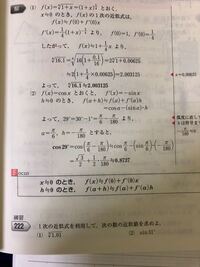 解 (1) f(x)=⁴√(1+x)=(1+x)^(1/4) とおく．
x≒0 のとき，f(x) の1次の近似式は，
f(x)≒f(0)+f'(0)x
f'(x)=1/4(1+x)^(-3/4) より，f(0)=1，f'(0)=1/4
したがって，f(x)≒1+1/4x より，
⁴√16.1=⁴√(16(1+0.1/16))=2⁴√(1+0.00625)
≒2(1+1/4×0.00625)=2.003125
よって，⁴√16.1≒2.003125
(2) f(x)=cos x とおくと，f'(x)=-sin x
h≒0 のとき，f(a+h)≒f(a)+f'(a)h
=cos a-(sin a)h
よって，29°=30°-1°=π/6-π/180 より，
a=π/6，h=-π/180 とすると，
cos29°=cos(π/6-π/180)≒cos π/6-(sin π/6)(-π/180)
=√3/2+1/2・π/180≒0.8727
Focus
x≒0 のとき，f(x)≒f(0)+f'(0)x
h≒0 のとき，f(a+h)≒f(a)+f'(a)h
練習
222
1次の近似式を利用して，次の数の近似値を求めよ．
(2) sin31°